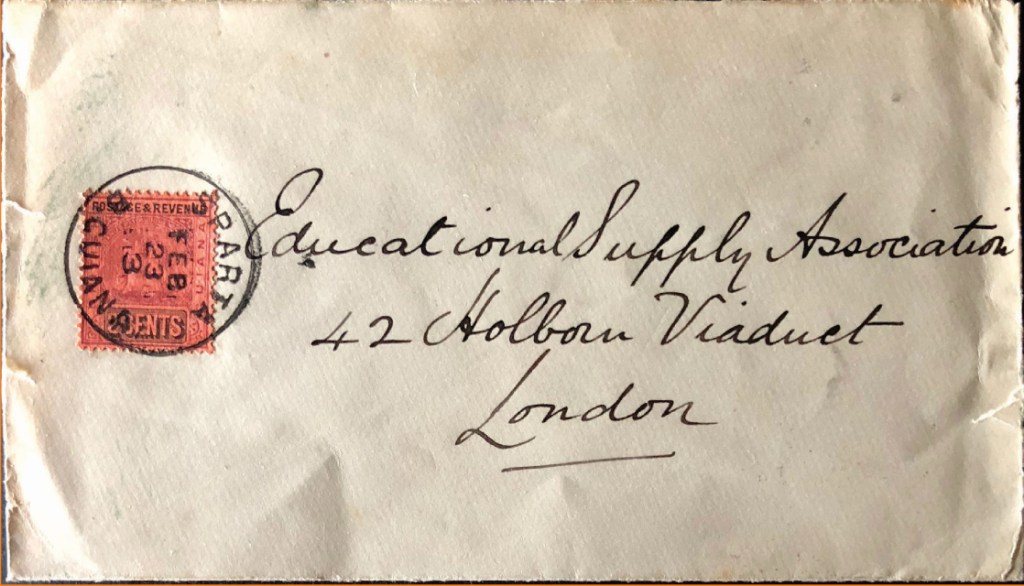 POSTAGE & REVENUE
SPARTA
FEB
23
B GUIANA
CENTS
Educational Supply Association
42 Holborn Viaduct
London